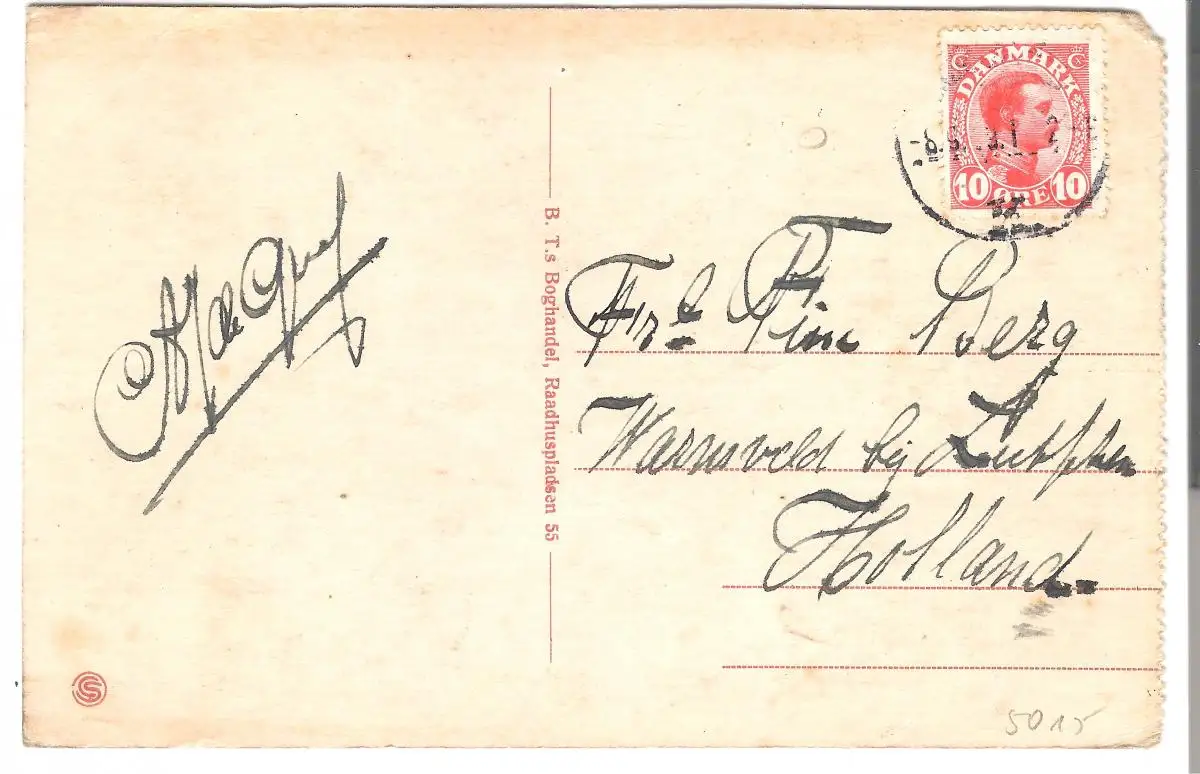 DANMARK
10 ØRE 10
de
B. T.s Boghandel, Raadhuspladsen 55
Frl Tine Berg
Warnsveld bij Zutphen
Holland.
S
5015